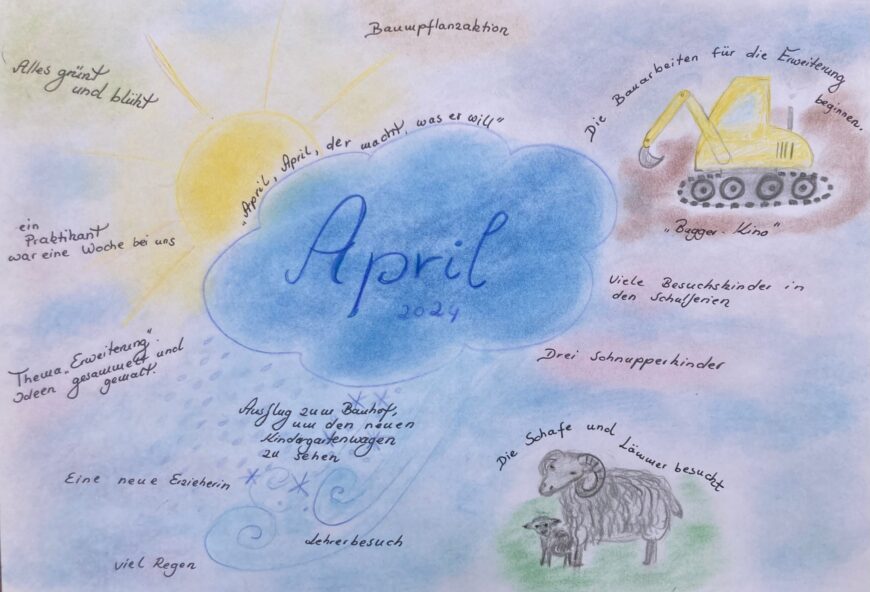 Baumpflanzaktion
Alles grünt
und blüht
Die Bauarbeiten für die Erweiterung
beginnen.
"April, April, der macht, was er will"
April
2024
ein
Praktikant
war eine Woche bei uns
"Bagger-Kino"
Viele Besuchskinder in
den Schulferien
Thema "Erweiterung".
Ideen gesammelt und
gemalt.
Drei Schnupperkinder
Ausflug zum Bauhof,
um den neuen
Kindergartenwagen
zu sehen
Die Schafe und Lämmer besucht
Eine neue Erzieherin
Lehrerbesuch
viel Regen